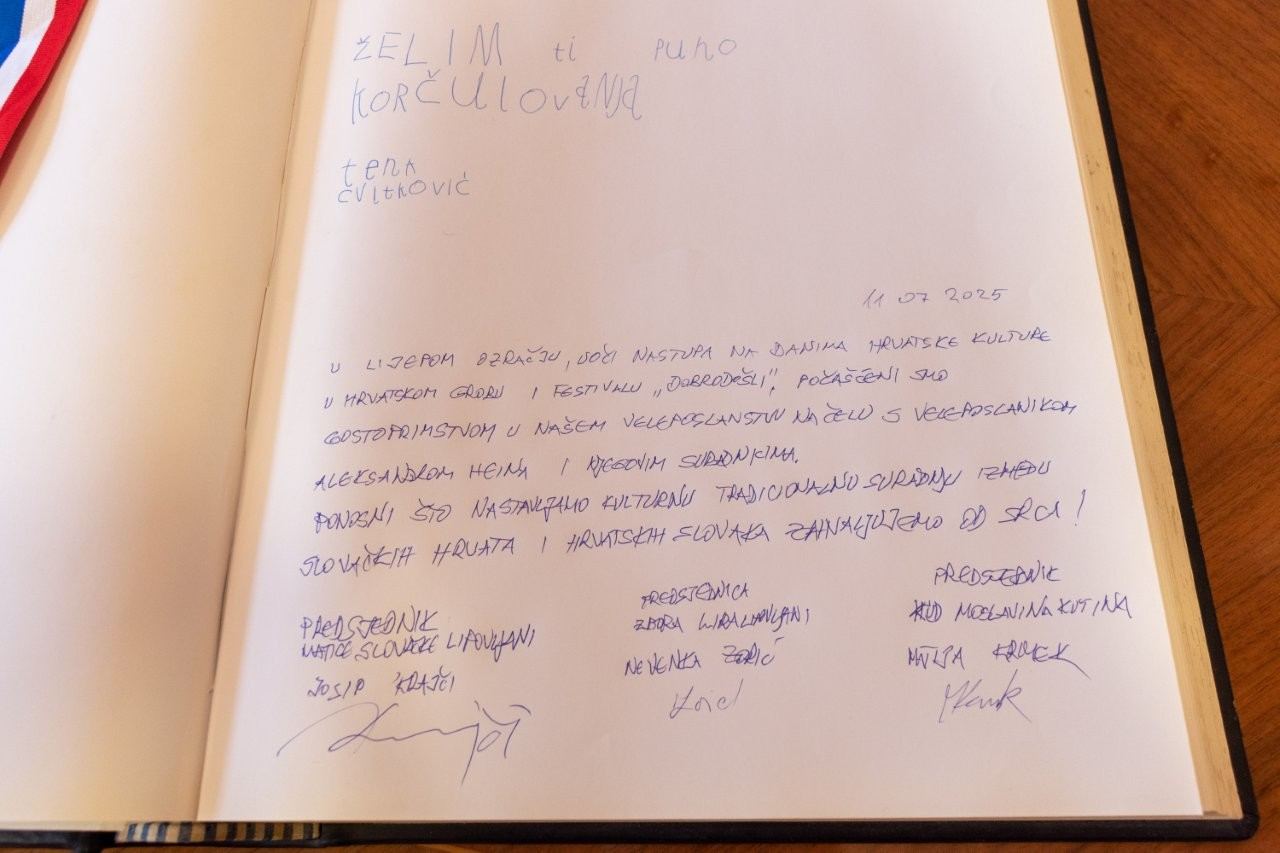 ŽELIM ti puno
KORČULOVANJA
tena
čvitković
11 07 2025
U LIJEPOM OZRAČJU, UOČI NASTUPA NA DANIMA HRVATSKE KULTURE
U HRVATSKOM GROBU I FESTIVALU „DOBRODOŠLI", POČAŠĆENI SMO
GOSTOPRIMSTVOM U NAŠEM VELEPOSLANSTVU NA ČELU S VELEPOSLANIKOM
ALEKSANDROM HEINA I NJEGOVIM SURADNICIMA.
PONOSNI ŠTO NASTAVLJAMO KULTURNU TRADICIONALNU SURADNJU IZMEĐU
SLOVAČKIH HRVATA I HRVATSKIH SLOVAKA ZAHVALJUJEMO OD SRCA!
PREDSJEDNIK
MATICE SLOVAČKE LIPOVLJANI
JOSIP KRAJČI
PREDSJEDNICA
ZBORA LIRA LIPOVLJANI
NEVENKA ZORIĆ
PREDSJEDNIK
KUD MOSLAVINA KUTINA
MATIJA